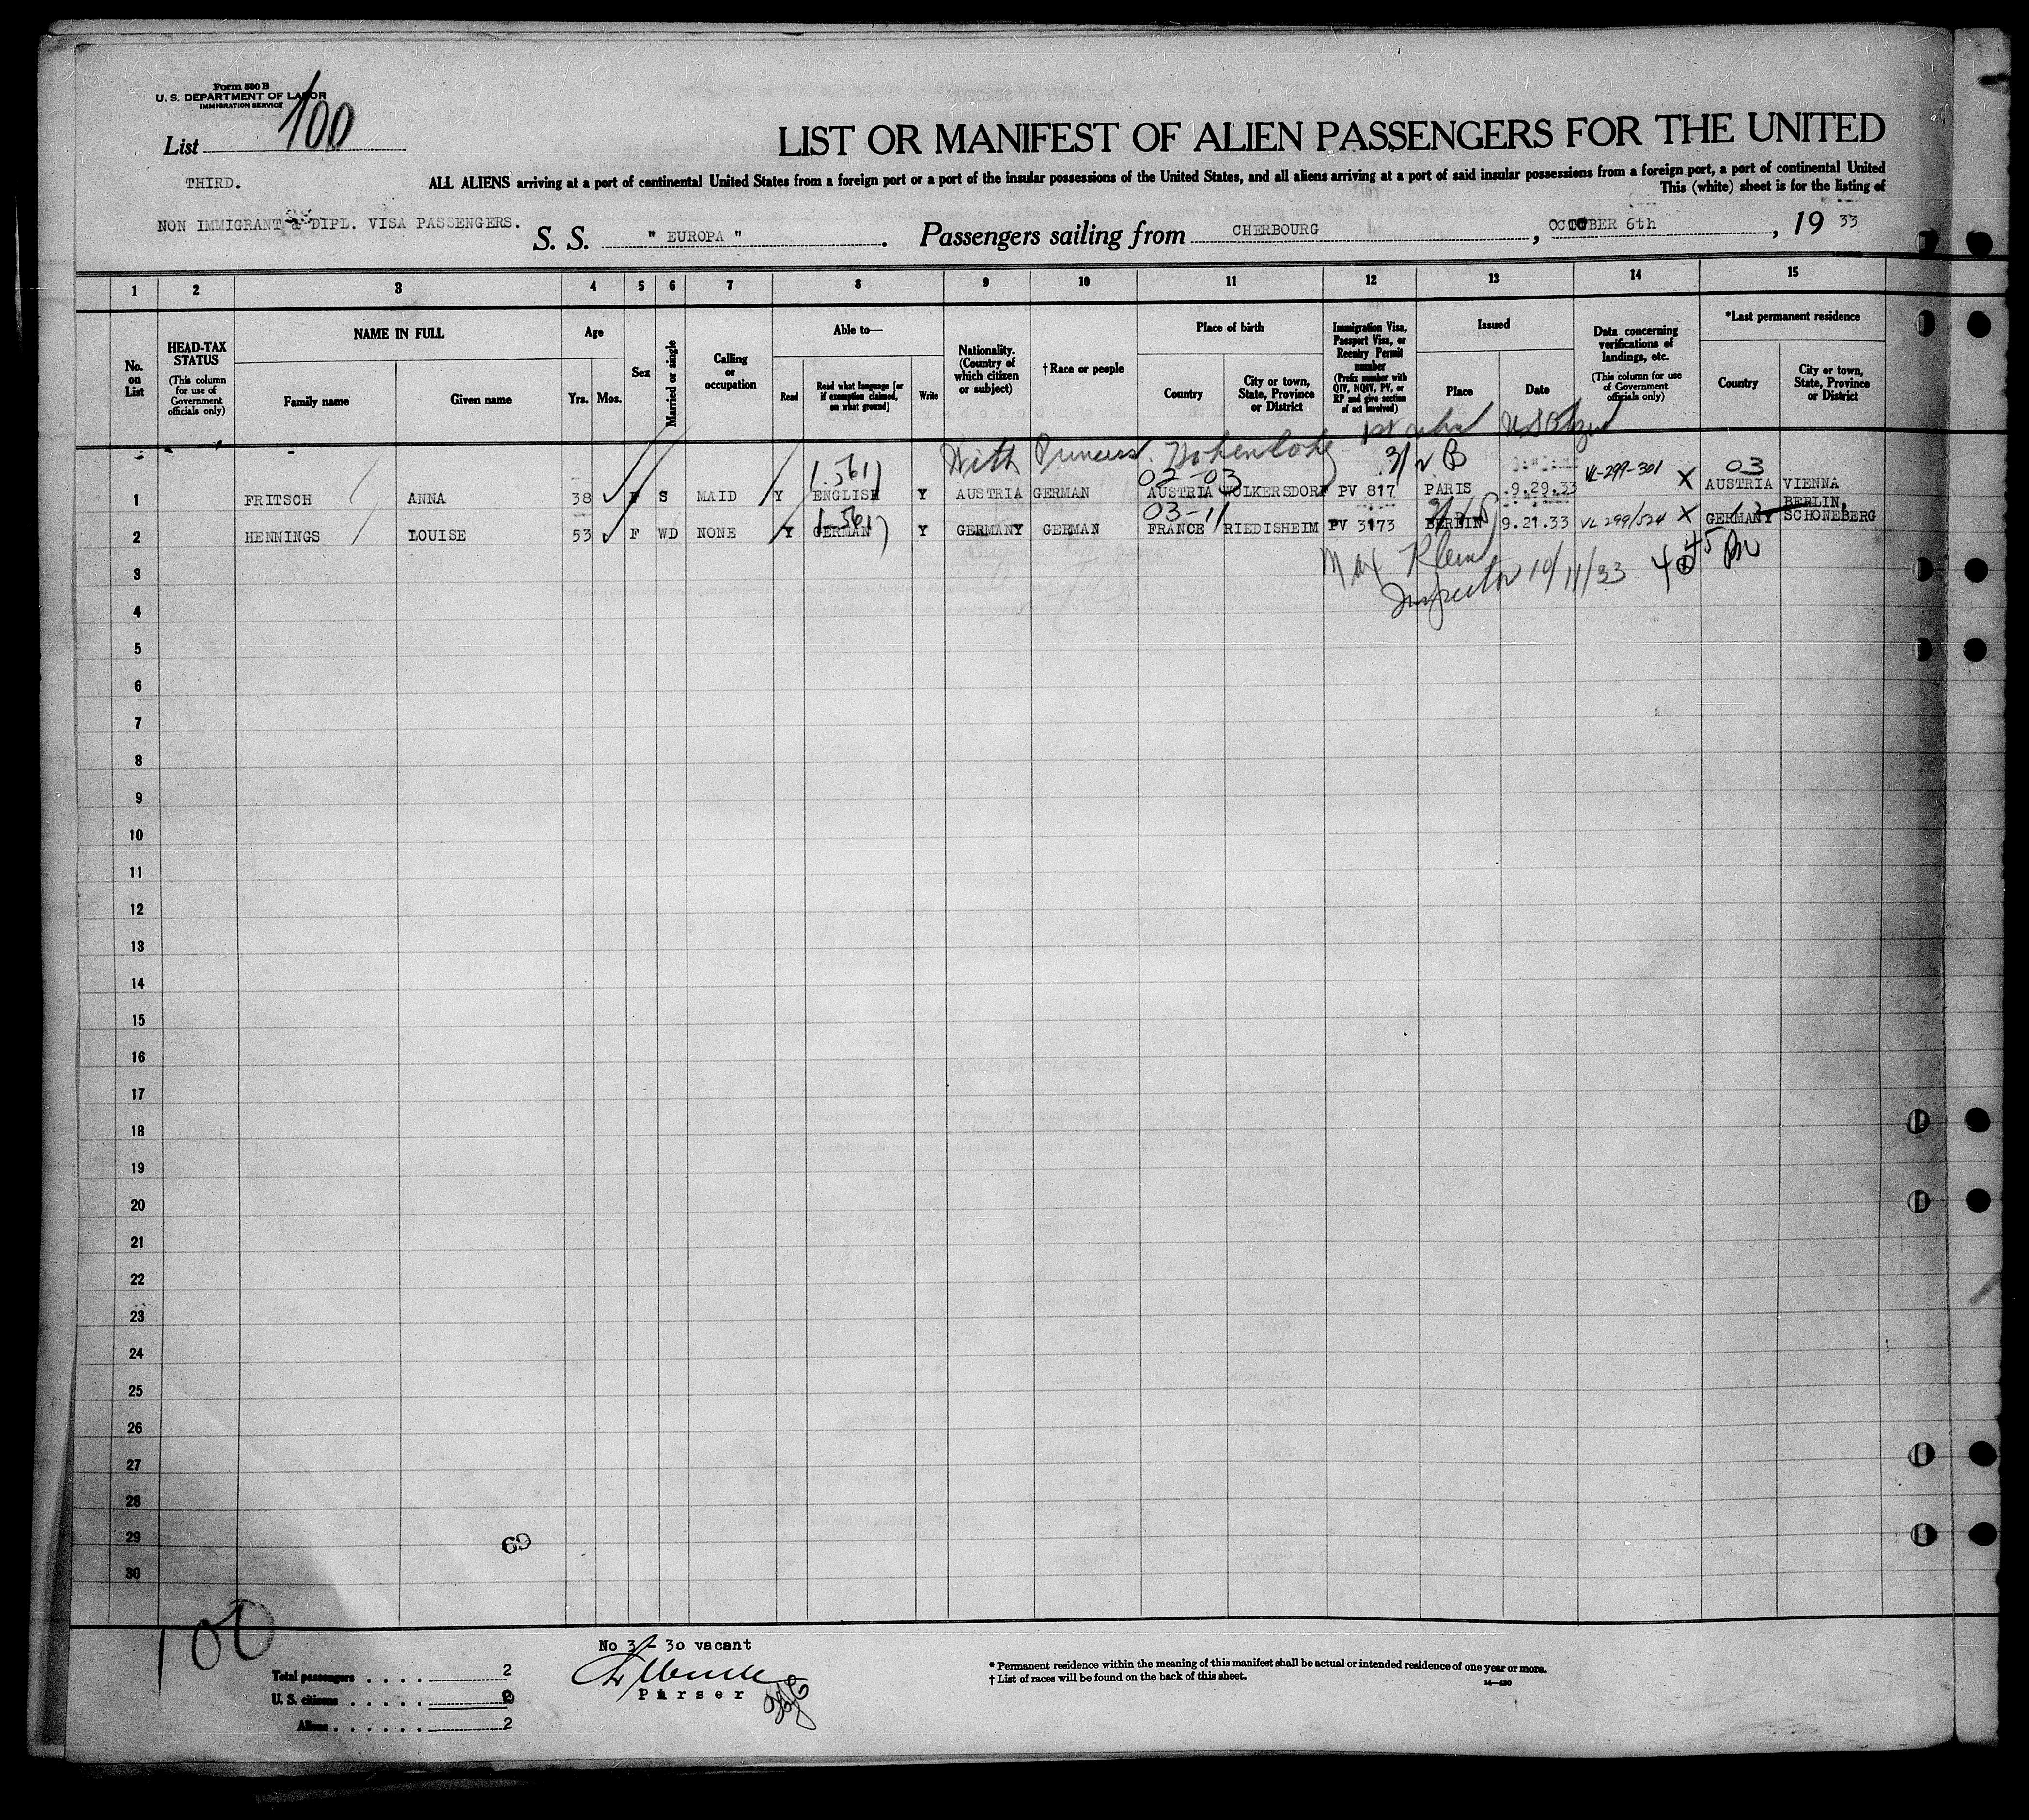 Form 500 B
U. S. DEPARTMENT OF LABOR
IMMIGRATION SERVICE
List 100
LIST OR MANIFEST OF ALIEN PASSENGERS FOR THE UNITED
THIRD.
ALL ALIENS arriving at a port of continental United States from a foreign port or a port of the insular possessions of the United States, and all aliens arriving at a port of said insular possessions from a foreign port, a port of continental United
This (white) sheet is for the listing of
NON IMMIGRANT & DIPL. VISA PASSENGERS.
S. S. " EUROPA ". Passengers sailing from CHERBOURG, OCTOBER 6th, 19 33
1 2 3 4 5 6 7 8 9 10 11 12 13 14 15
No. on List
HEAD-TAX STATUS
(This column for use of Government officials only)
NAME IN FULL
Family name
Given name
Age
Yrs. Mos.
Sex
Married or single
Calling or occupation
Able to—
Read
Read what language [or if exemption claimed, on what ground]
Write
Nationality. (Country of which citizen or subject)
† Race or people
Place of birth
Country
City or town, State, Province or District
Immigration Visa, Passport Visa, or Reentry Permit number
(Prefix number with QIV, NQIV, PV, or RP and give section of act involved)
Issued
Place
Date
Data concerning verifications of landings, etc.
(This column for use of Government officials only)
*Last permanent residence
Country
City or town, State, Province or District
With Princess Hohenlohe 1st cabin US Citizen
1.561) 02-03 3/2 B VL-299-301 X 03
1 FRITSCH ANNA 38 F S MAID Y ENGLISH Y AUSTRIA GERMAN AUSTRIA WOLKERSDORF PV 817 PARIS 9.29.33 AUSTRIA VIENNA
1-561) 03-11 3/2 B VL 299/524 X
2 HENNINGS LOUISE 53 F WD NONE Y GERMAN Y GERMANY GERMAN FRANCE RIEDISHEIM PV 3173 BERLIN 9.21.33 GERMANY BERLIN, SCHONEBERG
Max Klein
Inspector 10/11/33 4 45 PM
3
4
5
6
7
8
9
10
11
12
13
14
15
16
17
18
19
20
21
22
23
24
25
26
27
28
29
30
69
100
No 3 - 30 vacant
Purser
Total passengers . . . . 2
U. S. citizens . . . . . 0
Aliens . . . . . . 2
* Permanent residence within the meaning of this manifest shall be actual or intended residence of one year or more.
† List of races will be found on the back of this sheet.
14—430